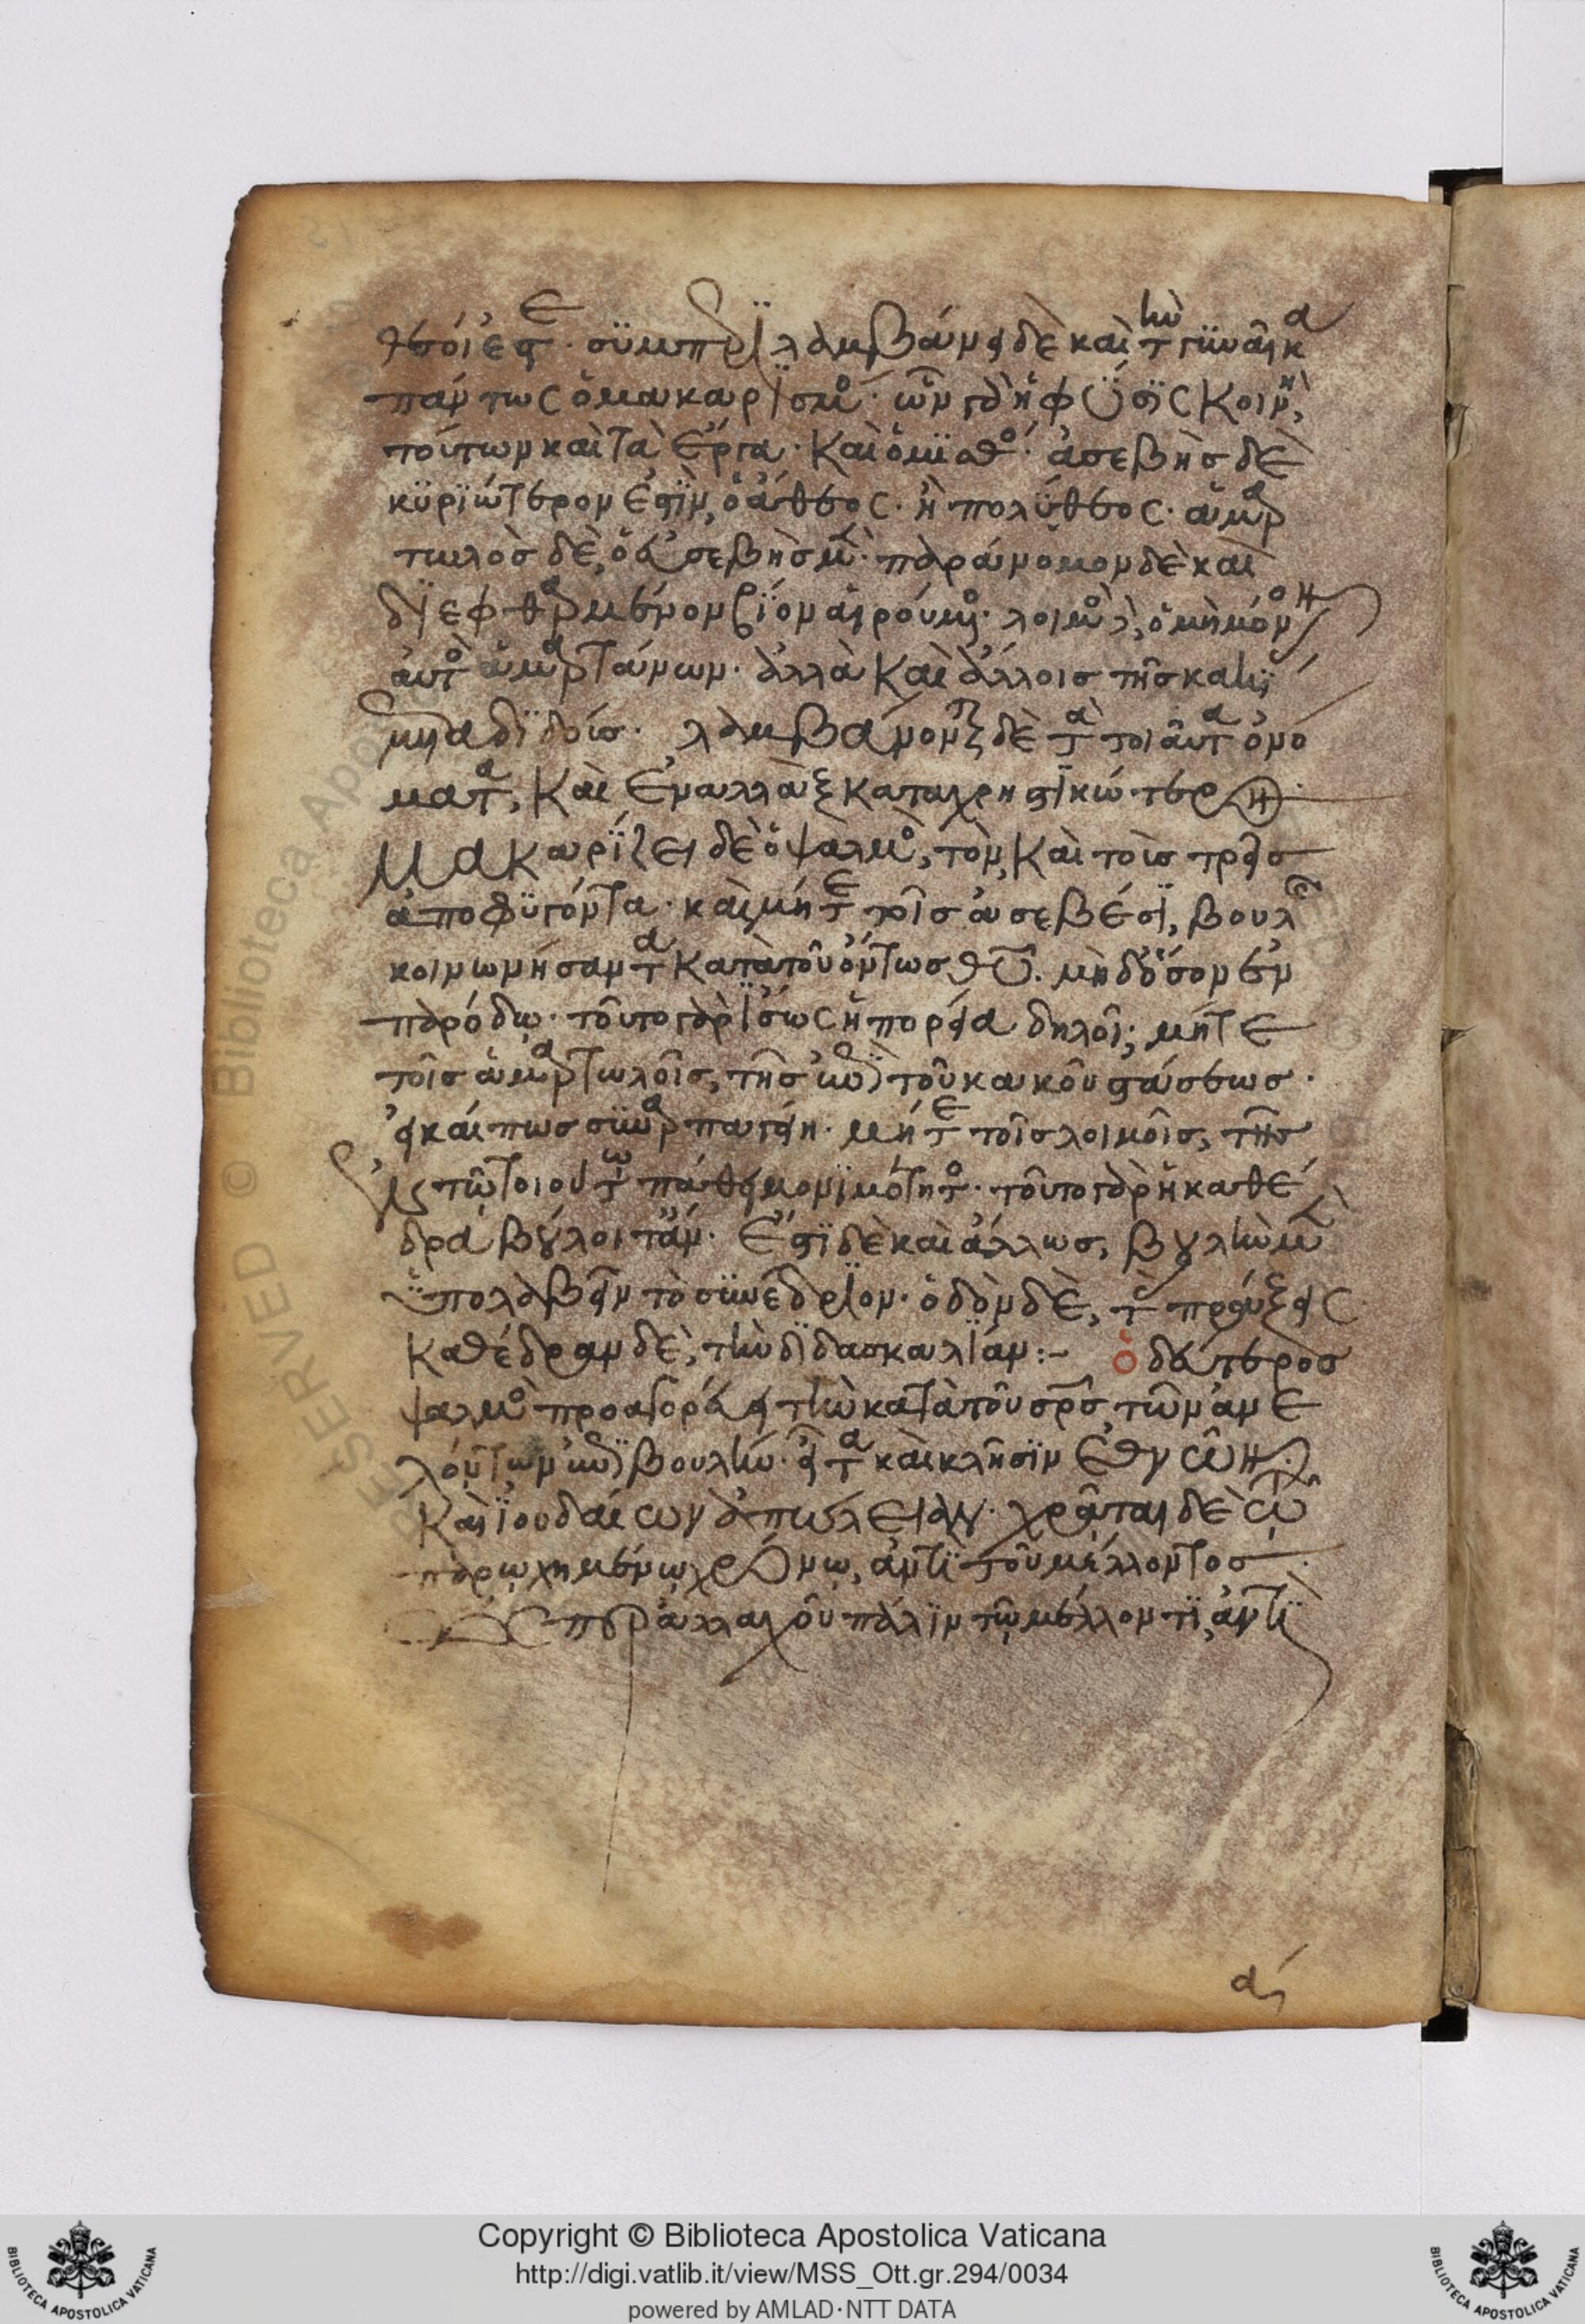 θεοί ἐστε· συμπεριλαμβάνει δὲ καὶ τὴν γυναῖκα
πάντως ὁ μακαρισμός· ὧν γὰρ ἡ φύσις κοινή,
τούτων καὶ τὰ ἔργα· καὶ ὁ μισθός· ἀσεβὴς δὲ
κυριώτερον ἐστὶν, ὁ ἄθεος· ἢ πολύθεος· ἁμαρ
τωλὸς δὲ, ὁ εὐσεβὴς μὲν· παράνομον δὲ καὶ
διεφθαρμένον βίον αἱρούμενος· λοιμὸς δὲ, ὁ μὴ μόνον
αὐτὸς ἁμαρτάνων· ἀλλὰ καὶ ἄλλοις τῆς κακίας
μεταδιδούς· λαμβάνονται δὲ τὰ τοιαῦτα ὀνό
ματα, καὶ ἐναλλὰξ καταχρηστικώτερον·
Μακαρίζει δὲ ὁ ψαλμὸς, τὸν καὶ τοὺς τρεῖς
ἀποφυγόντα· καὶ μήτε τοῖς ἀσεβέσι, βουλῆς
κοινωνήσαντα κατὰ τοῦ ὄντως θεοῦ. μὴ δ' ὅσον ἐν
παρόδω· τοῦτο γὰρ ἴσως ἡ πορεία δηλοῖ· μήτε
τοῖς ἁμαρτωλοῖς, τῆς ἐν τῶ τοῦ κακοῦ στάσεως·
εἰ καί πως συναρπαγείη· μήτε τοῖς λοιμοῖς, τῆς
ἐν τῶ τοιούτω πάθει μονιμότητος· τοῦτο γὰρ ἡ καθέ
δρα βούλοιτ' ἄν· ἔστι δὲ καὶ ἄλλως, βουλὴν μὲν
ὑπολαβεῖν τὸ συνέδριον· ὁδὸν δὲ, τὰς πράξεις
καθέδραν δὲ, τὴν διδασκαλίαν:- ὁ δεύτερος
ψαλμὸς προαγορεύει τὴν κατὰ τοῦ σωτῆρος τῶν ἀνε
λόντων αὐτὸν βουλήν· εἶτα καὶ κλῆσιν ἐθνῶν·
καὶ ἰουδαίων ἀπώλειαν· χρῆται δὲ τῶ
παρωχημένω χρόνω, ἀντὶ τοῦ μέλλοντος·
ὥσπερ ἀλλαχοῦ πάλιν τῶ μέλλοντι, ἀντὶ
α
Copyright © Biblioteca Apostolica Vaticana
http://digi.vatlib.it/view/MSS_Ott.gr.294/0034
powered by AMLAD·NTT DATA